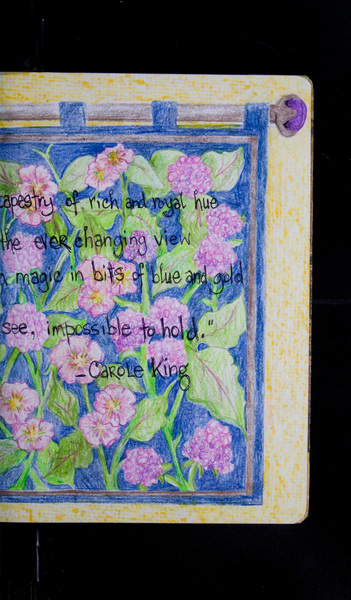 tapestry of rich and royal hue
the ever changing view
magic in bits of blue and gold
see, impossible to hold."
-Carole King